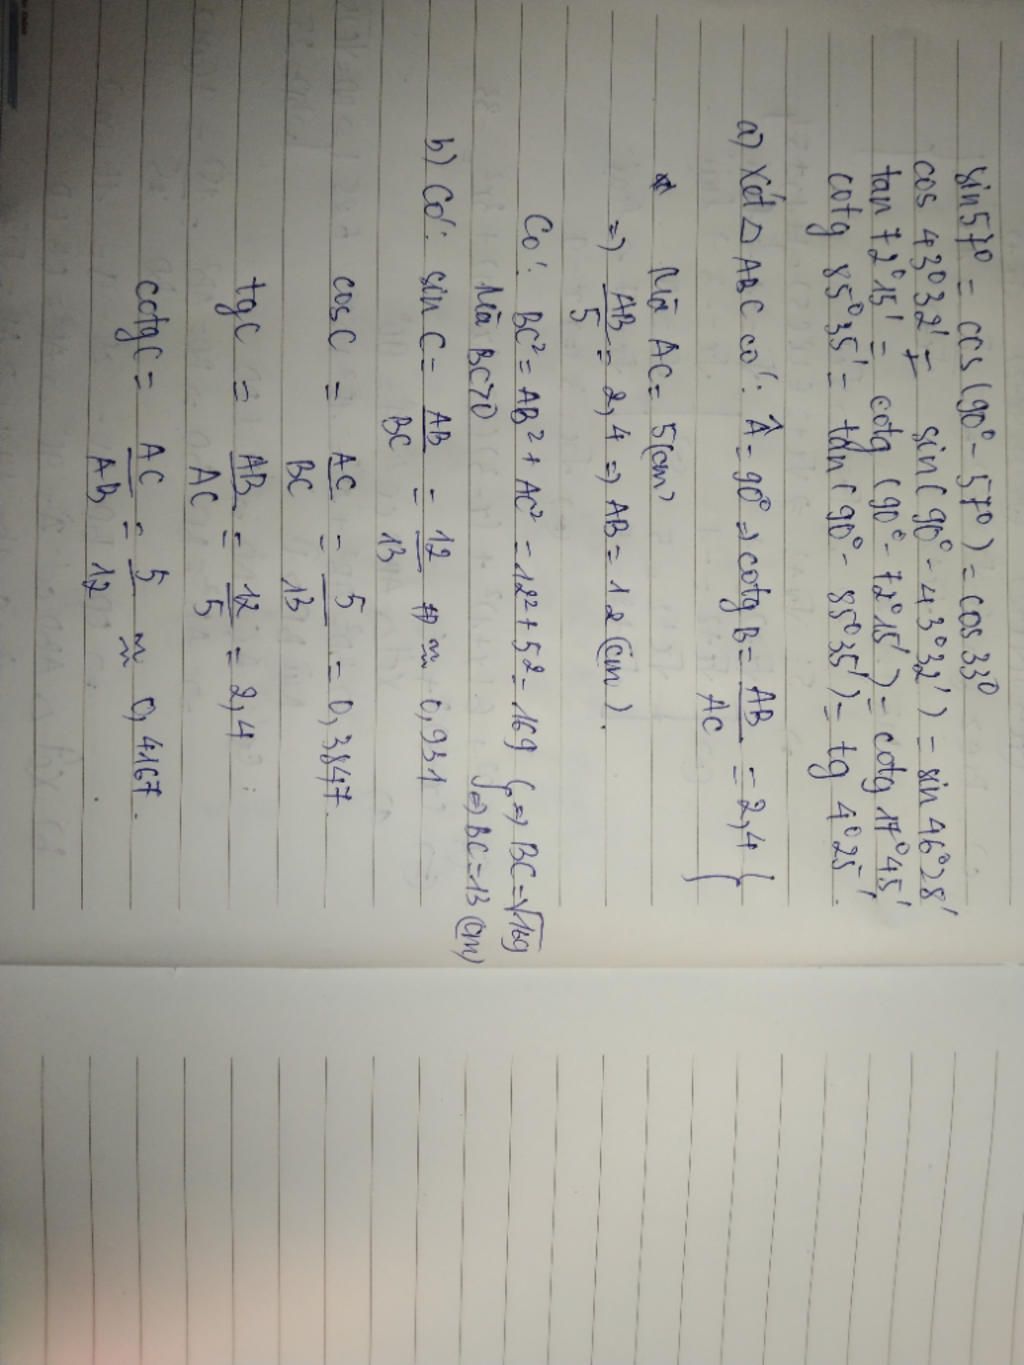 sin57⁰ = cos(90⁰ - 57⁰) = cos 33⁰
cos 43⁰32' = sin(90⁰ - 43⁰32') = sin 46⁰28'
tan 72⁰15' = cotg (90⁰ - 72⁰15') = cotg 17⁰45'
cotg 85⁰35' = tan(90⁰ - 85⁰35') = tg 4⁰25'.
a) Xét △ ABC có: Â = 90⁰ => cotg B = AB/AC = 2,4 }
Mà AC = 5(cm)
=> AB/5 = 2,4 => AB = 12 (cm).
Có: BC² = AB² + AC² = 12² + 5² = 169 (=> BC = √169
Mà BC>0 => BC = 13 (cm)
b) Có: sin C = AB/BC = 12/13 ≈ 0,931
cosC = AC/BC = 5/13 = 0,3847.
tgC = AB/AC = 12/5 = 2,4
cotgC = AC/AB = 5/12 ≈ 0,4167.